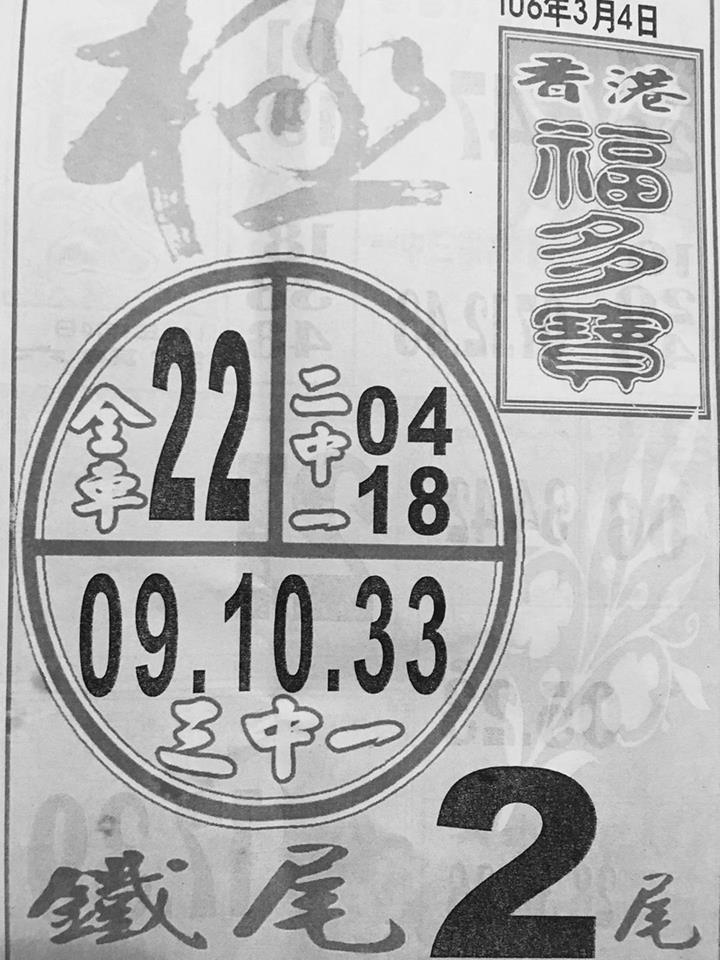 106年3月4日
香港
福多寶
極
全車
22
二中一
04
18
09.10.33
三中一
鐵尾 2 尾